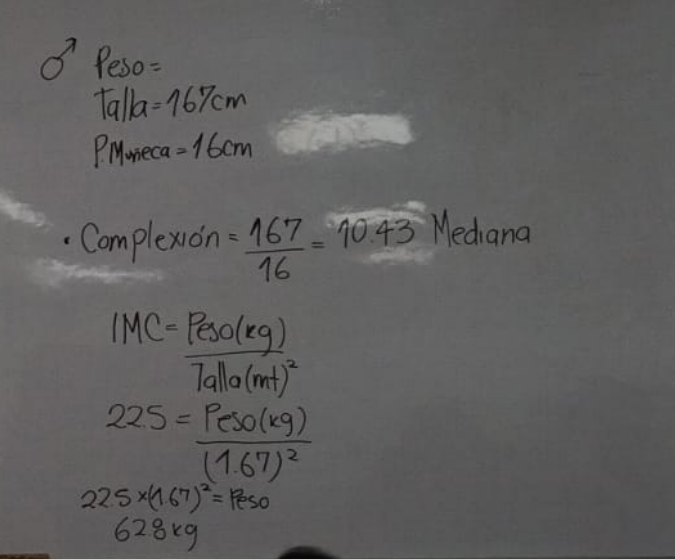 ♂ Peso =
Talla = 167cm
P.Muñeca = 16cm
• Complexión = 167/16 = 10.43 Mediana
IMC = Peso(kg)/Talla(mt)²
22.5 = Peso(kg)/(1.67)²
22.5 x (1.67)² = Peso
62.8 kg